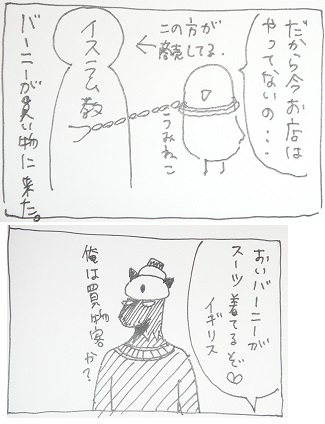 だから今お店は
やってないの・・・
この方が
商売してる.
←
イスラム教
うみねこ
バーニーが買い物に来た。
おいバーニーが
スーツ着てるぞ♡
イギリス
俺は買物客か?